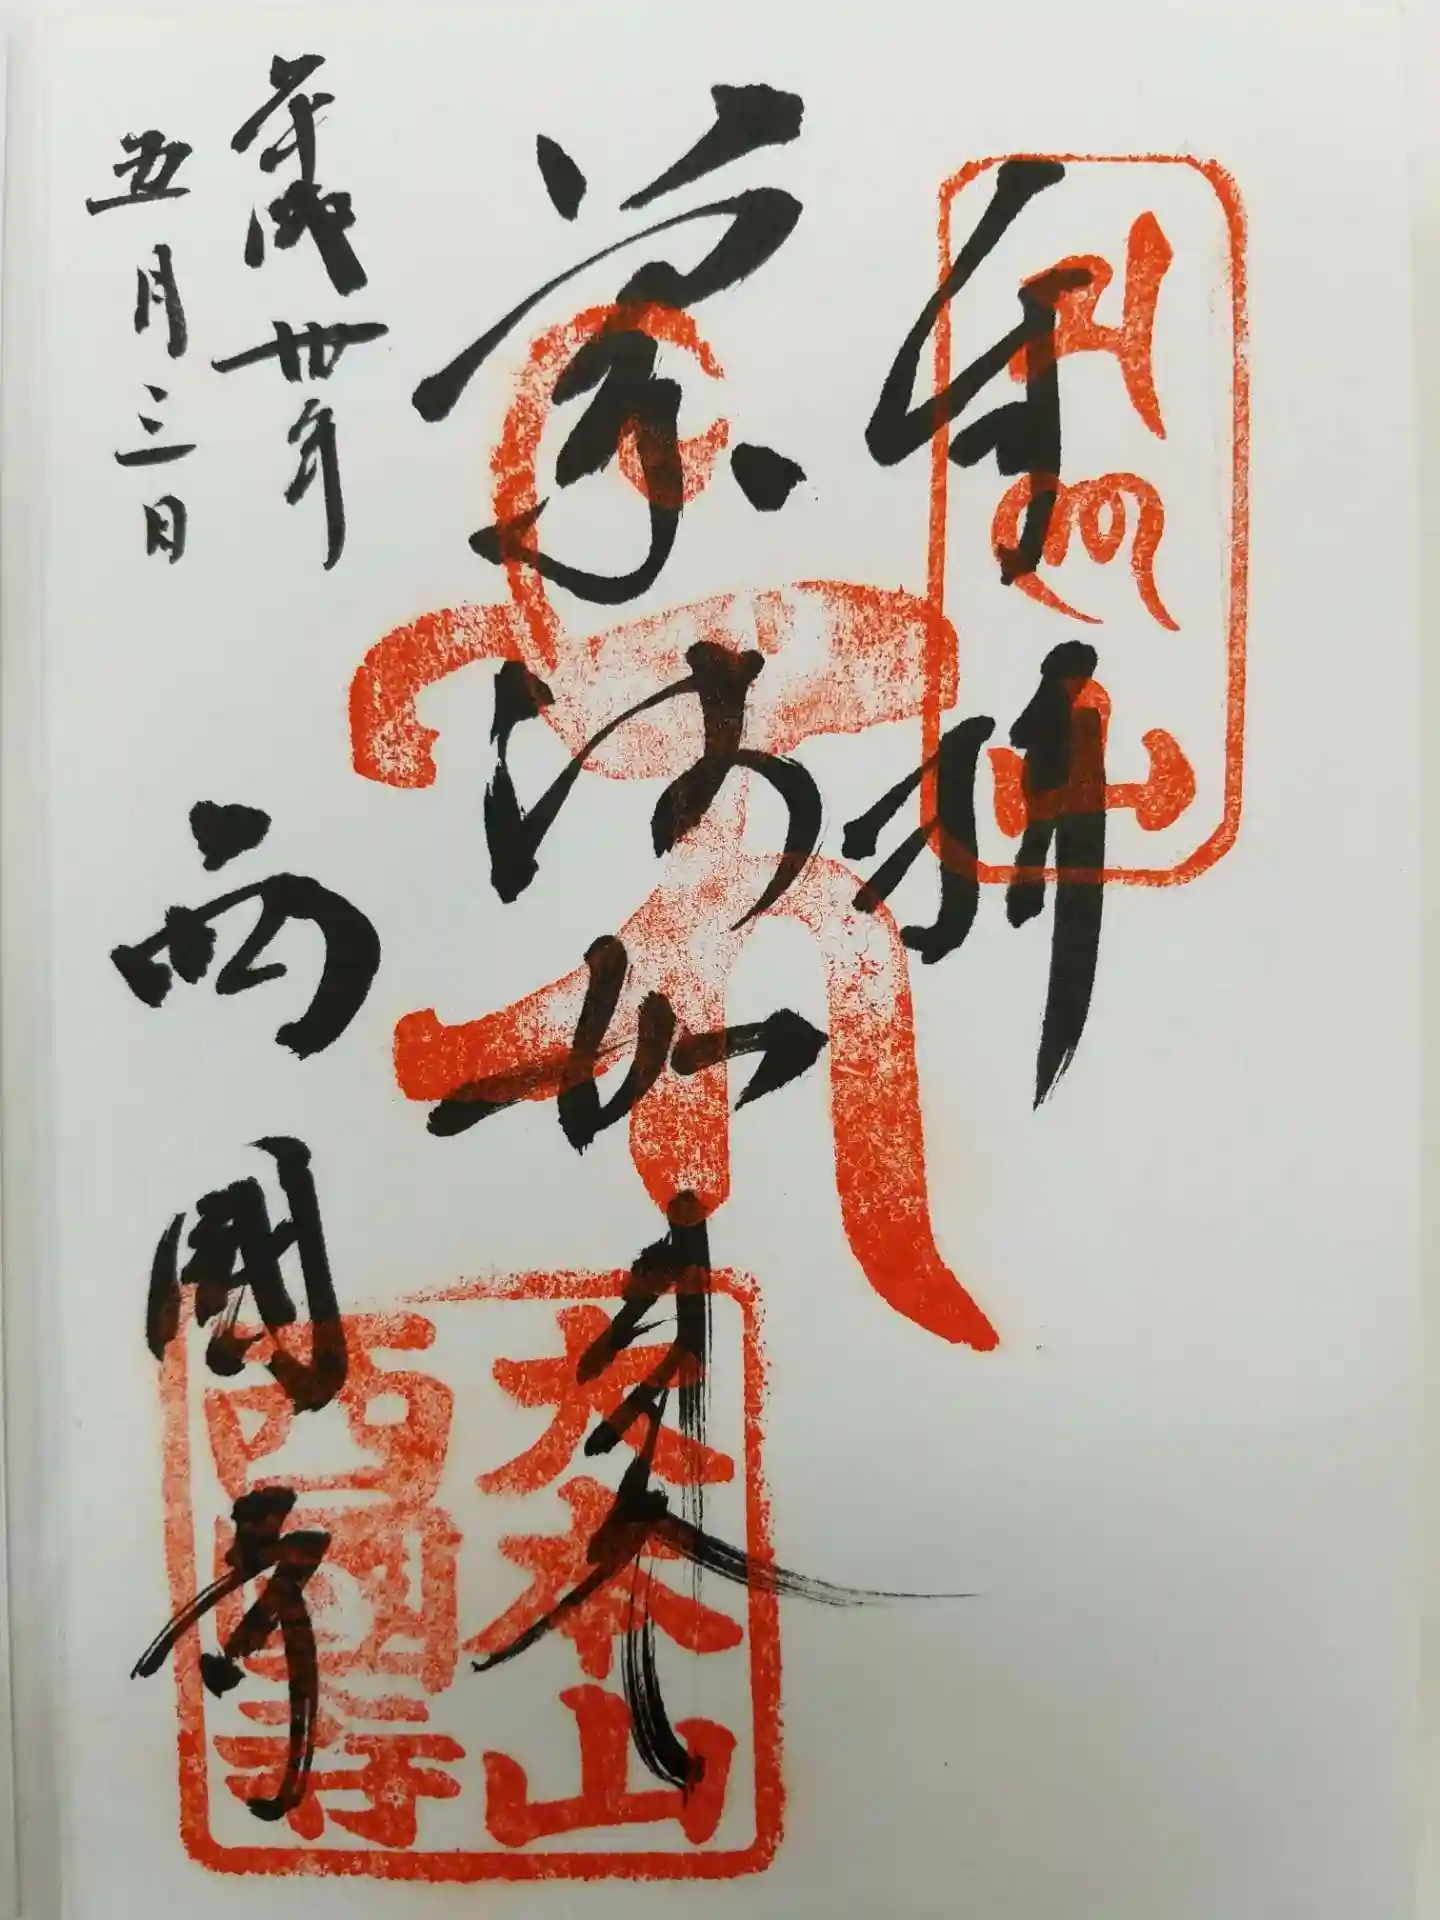 奉拝
薬師如来
大本山
西國寺
平成卅年
五月三日
西國寺